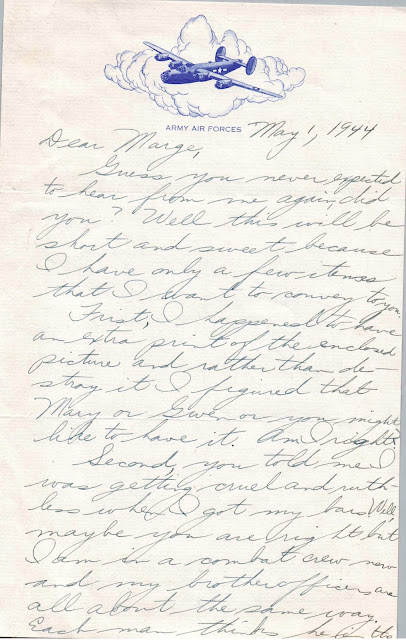 ARMY AIR FORCES
May 1, 1944
Dear Marge,
Guess you never expected
to hear from me again, did
you? Well this will be
short and sweet because
I have only a few items
that I want to convey to you.
First, I happened to have
an extra print of the enclosed
picture and rather than de-
stroy it I figured that
Mary or Gwen or you might
like to have it. Am I right?
Second, you told me I
was getting cruel and ruth-
less when I got my bars. Well,
maybe you are right but
I am in a combat crew now
and my brother officers are
all about the same way.
Each man thinks he is the